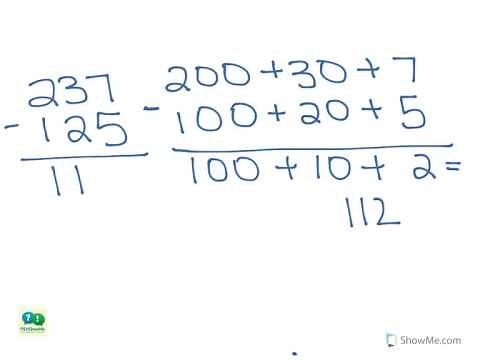 237
- 125
11
200 + 30 + 7
- 100 + 20 + 5
100 + 10 + 2 =
112
ShowMe.com